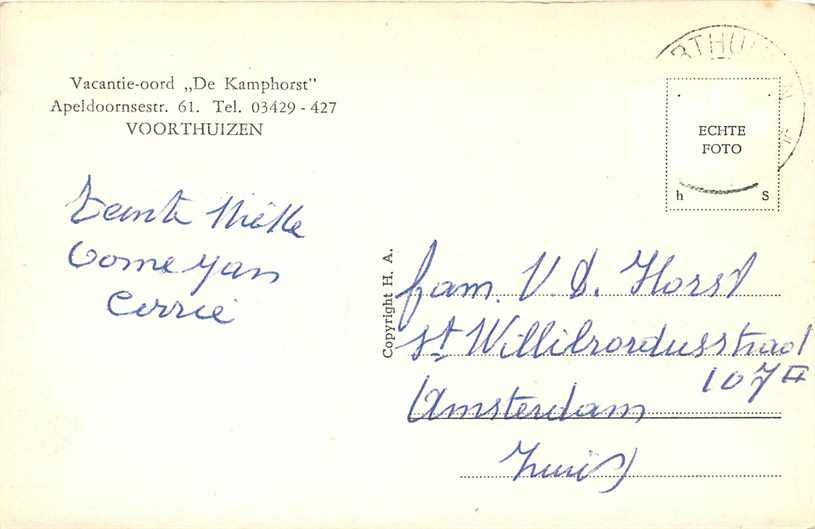 Vacantie-oord „De Kamphorst"
Apeldoornsestr. 61. Tel. 03429 - 427
VOORTHUIZEN
ECHTE
FOTO
h S
Copyright H. A.
Tante
Oome Jan
Corrie
fam. V. D. Horst
St Willibrordusstraat
107 II
Amsterdam
Zuid